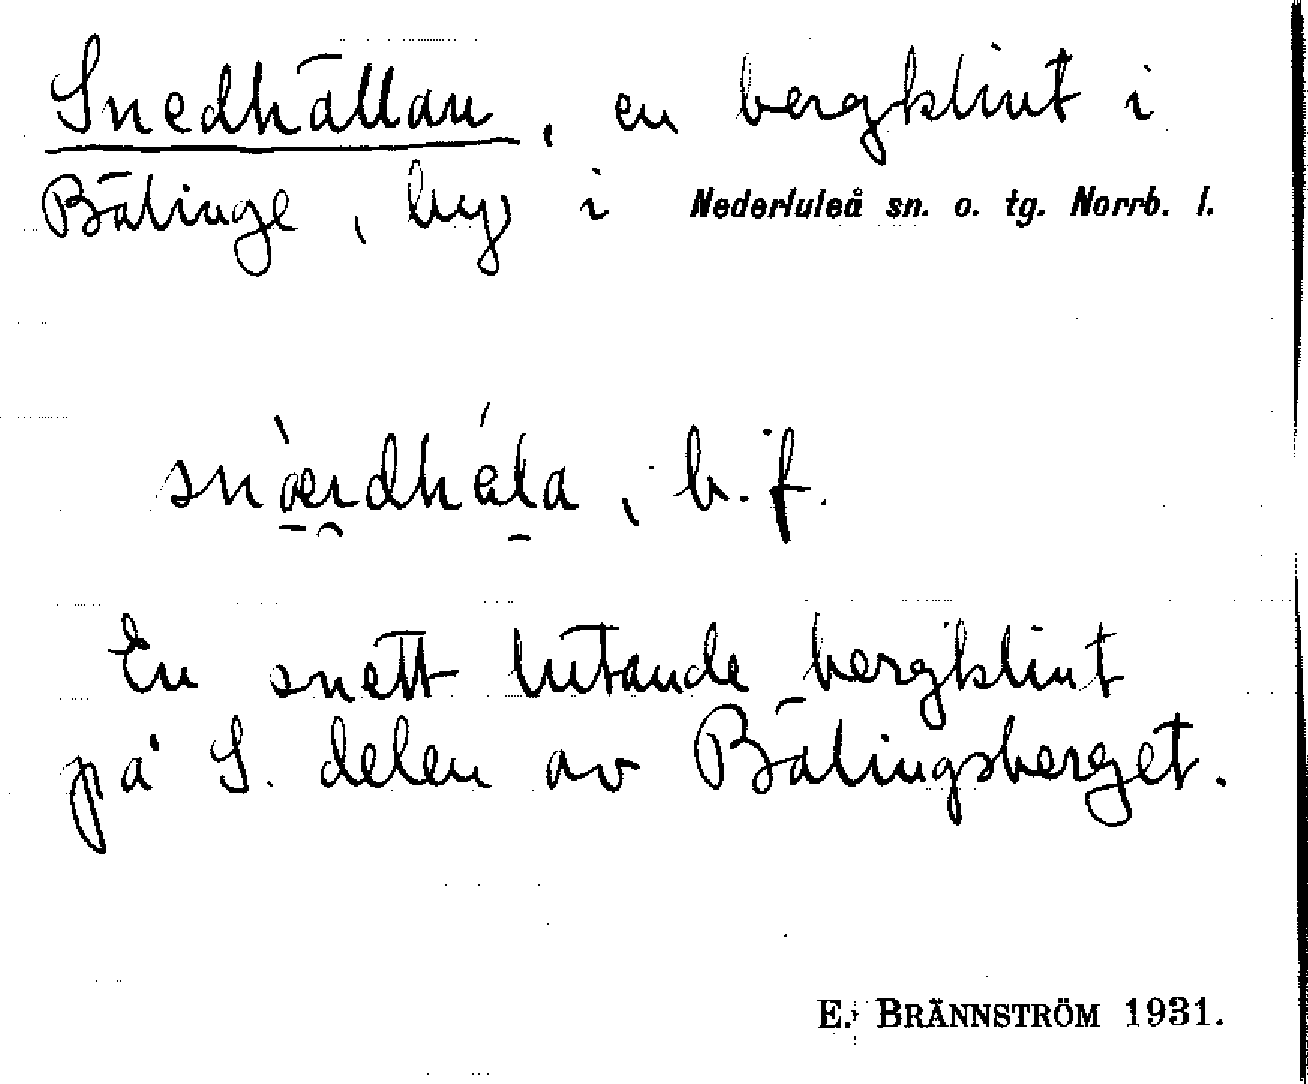 Snedhällan, en bergklint i
Bälinge, by i Nederluleå sn. o. tg. Norrb. l.
b. f.
En snett lutande bergklint
på S. delen av Bälingsberget.
E. BRÄNNSTRÖM 1931.